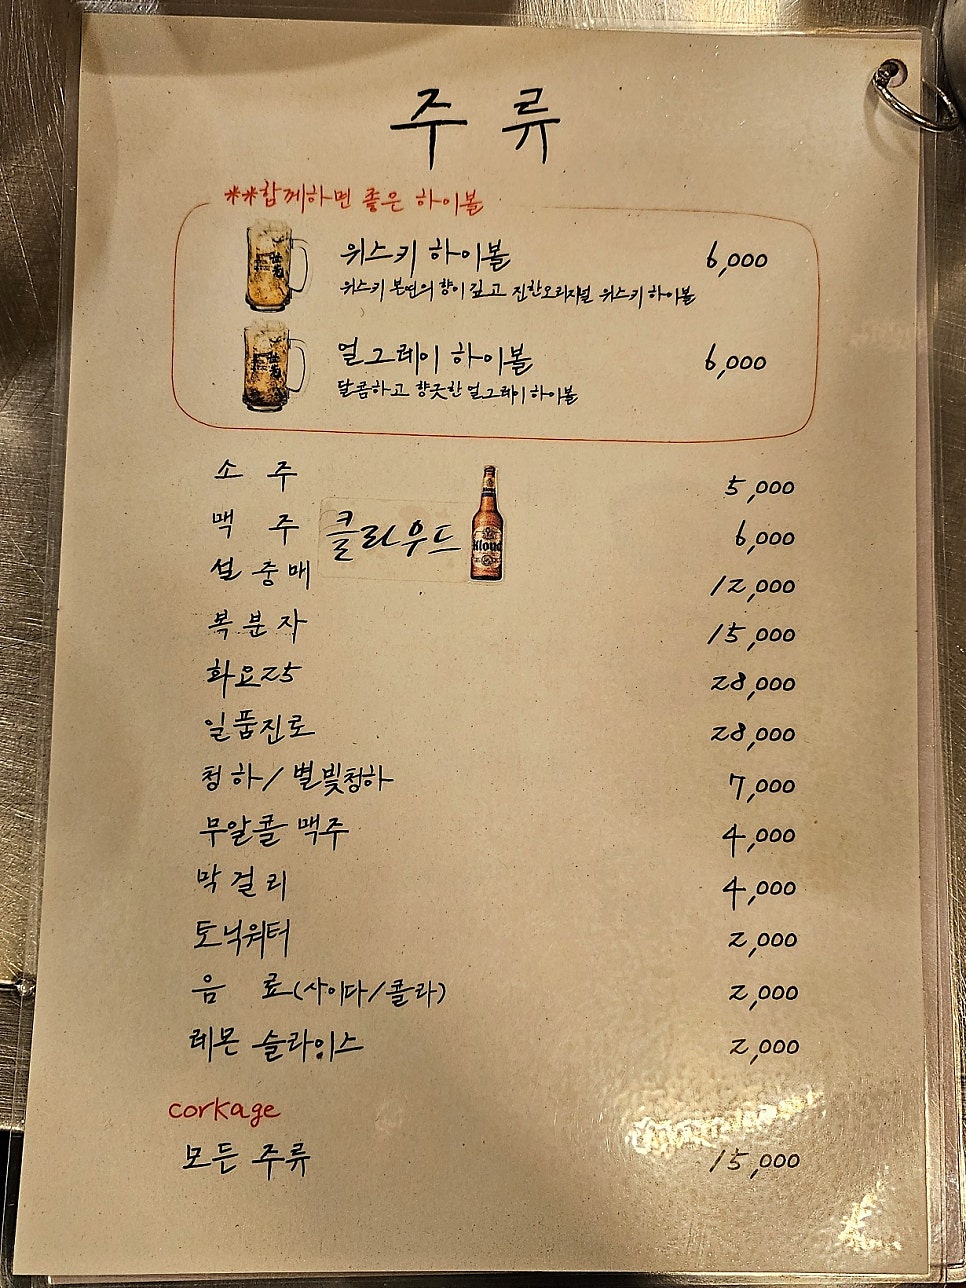 주 류
**함께하면 좋은 하이볼
위스키 하이볼 6,000
위스키 본연의 향이 깊고 진한 오리지널 위스키 하이볼
얼그레이 하이볼 6,000
달콤하고 향긋한 얼그레이 하이볼
소 주 5,000
맥 주 클라우드 Kloud 6,000
설중매 12,000
복분자 15,000
화요25 28,000
일품진로 28,000
청하/별빛청하 7,000
무알콜 맥주 4,000
막걸리 4,000
토닉워터 2,000
음 료(사이다/콜라) 2,000
레몬 슬라이스 2,000
corkage
모든 주류 15,000